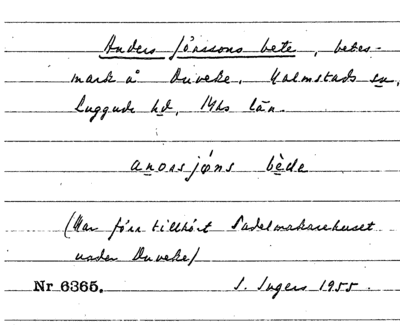 Anders Jönssons bete, betes-
mark å Duveke, Halmstads sn,
Luggude hd, Mhs län.
anorsjöns bède
(Har förr tillhört Sadelmakarehuset
under Duveke)
Nr 6365. I. Ingers 1955.